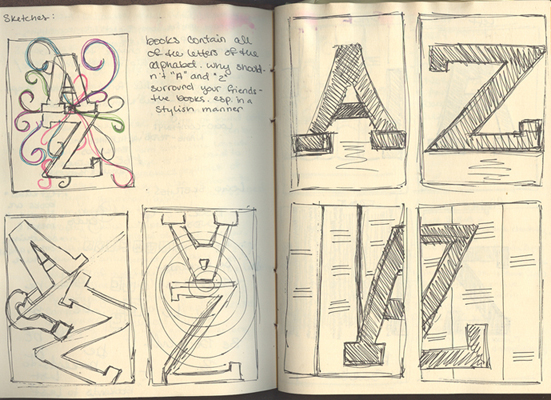 Sketches:
books contain all
of the letters of the
alphabet. why should-
n't "A" and "Z"
surround your friends-
the books. esp. in a
stylish manner
A
Z
A
Z
A
Z
A
Z
A
Z